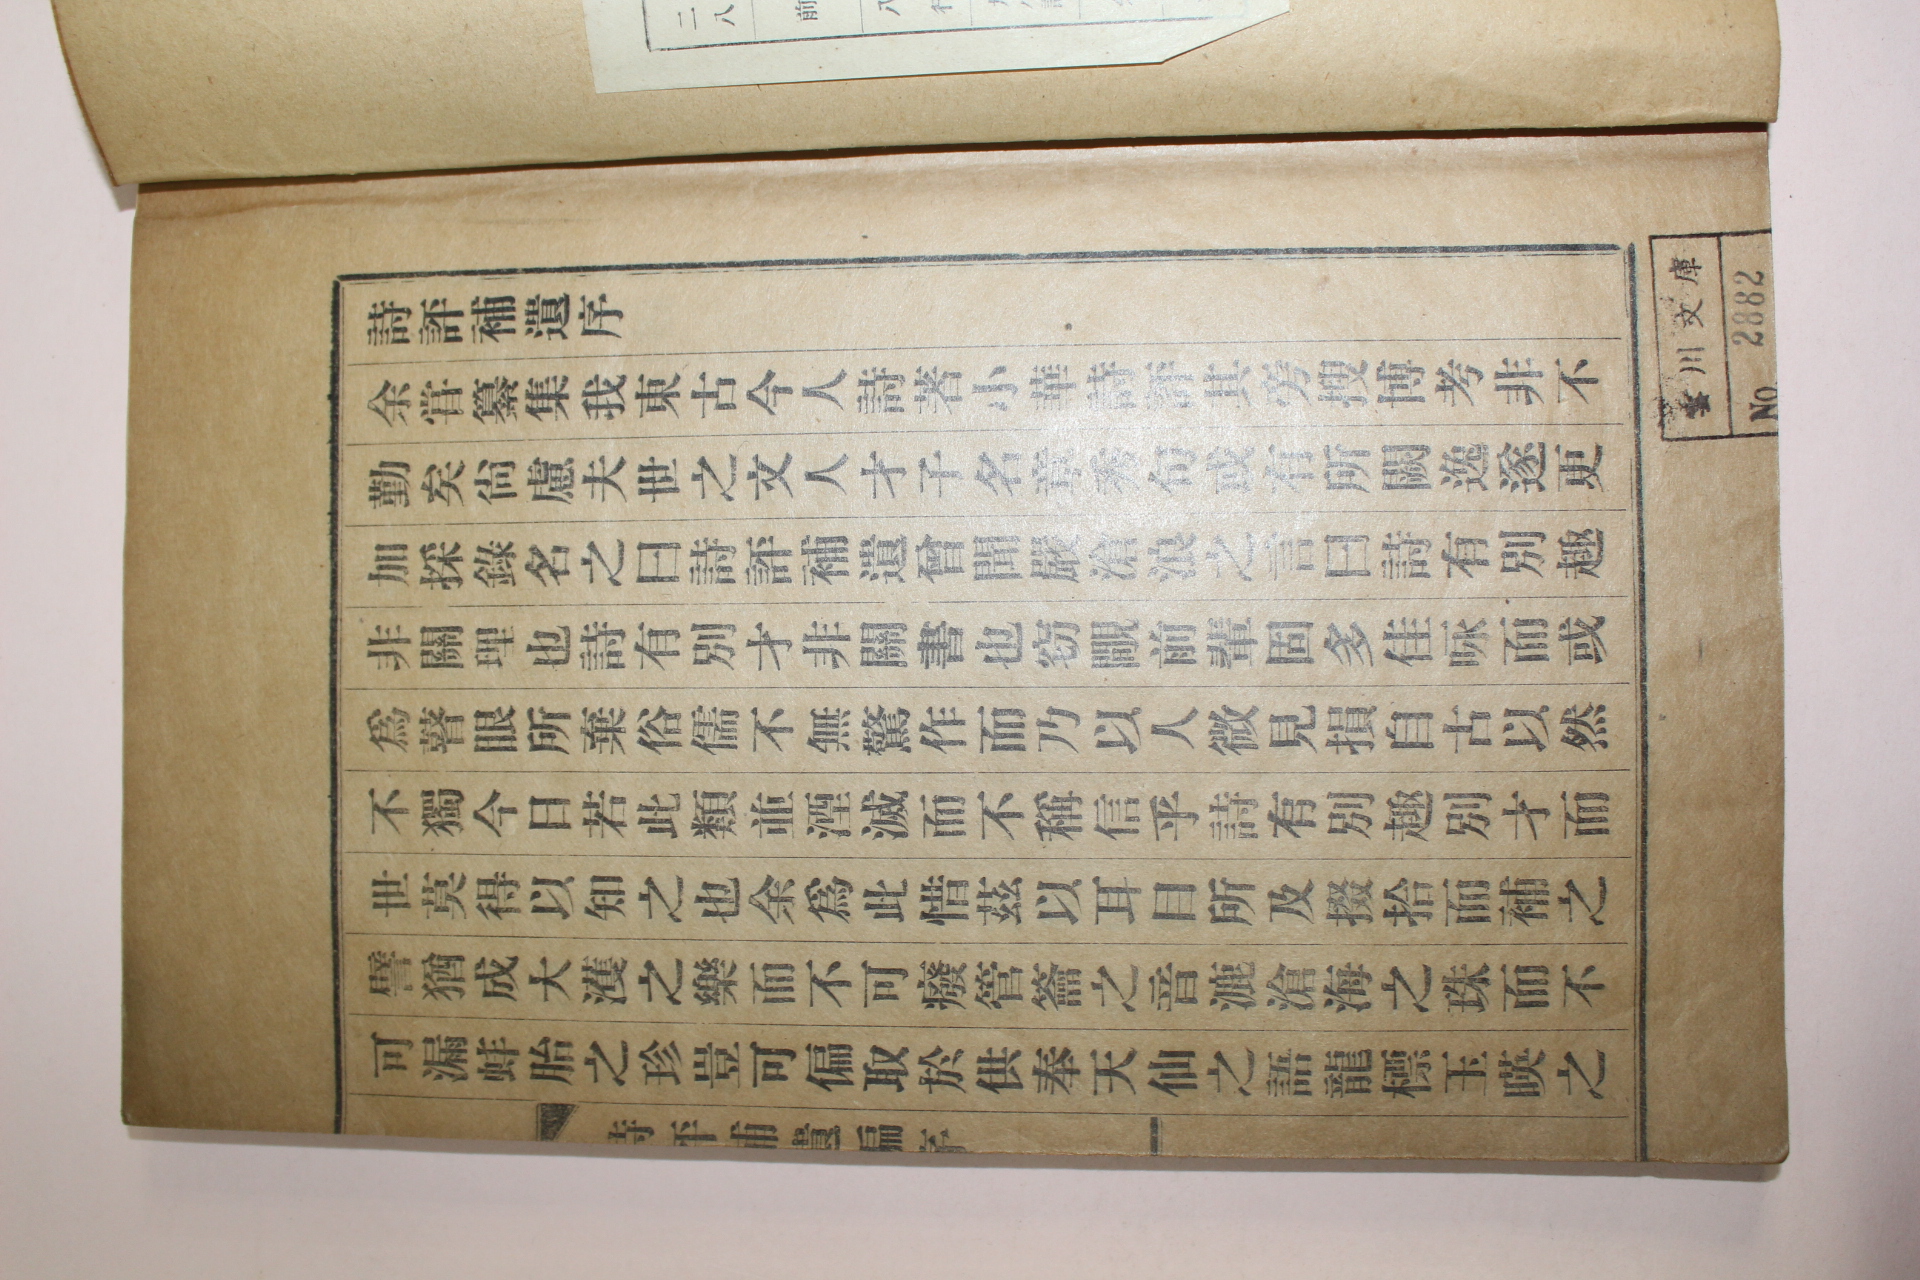 詩評補遺序
余嘗纂集我東古今人詩著小華詩評其旁搜博考非不
勤矣尙慮夫世之文人才子名章秀句或有所闕逸遂更
加採錄名之曰詩評補遺曾聞嚴滄浪之言曰詩有別趣
非關理也詩有別才非關書也窃覵前輩固多佳咏而或
爲瞽眼所棄俗儒不無驚作而乃以人微見損自古以然
不獨今日若此類並湮滅而不稱信乎詩有別趣別才而
世莫得以知之也余爲此惜茲以耳目所及掇拾而補之
譬猶成大濩之樂而不可癈管籥之音漉滄海之珠而不
可漏蚌胎之珍豈可偏取於供奉天仙之語龍標玉暎之
詩評補遺編序
川文庫
No. 2882
二八
前
八